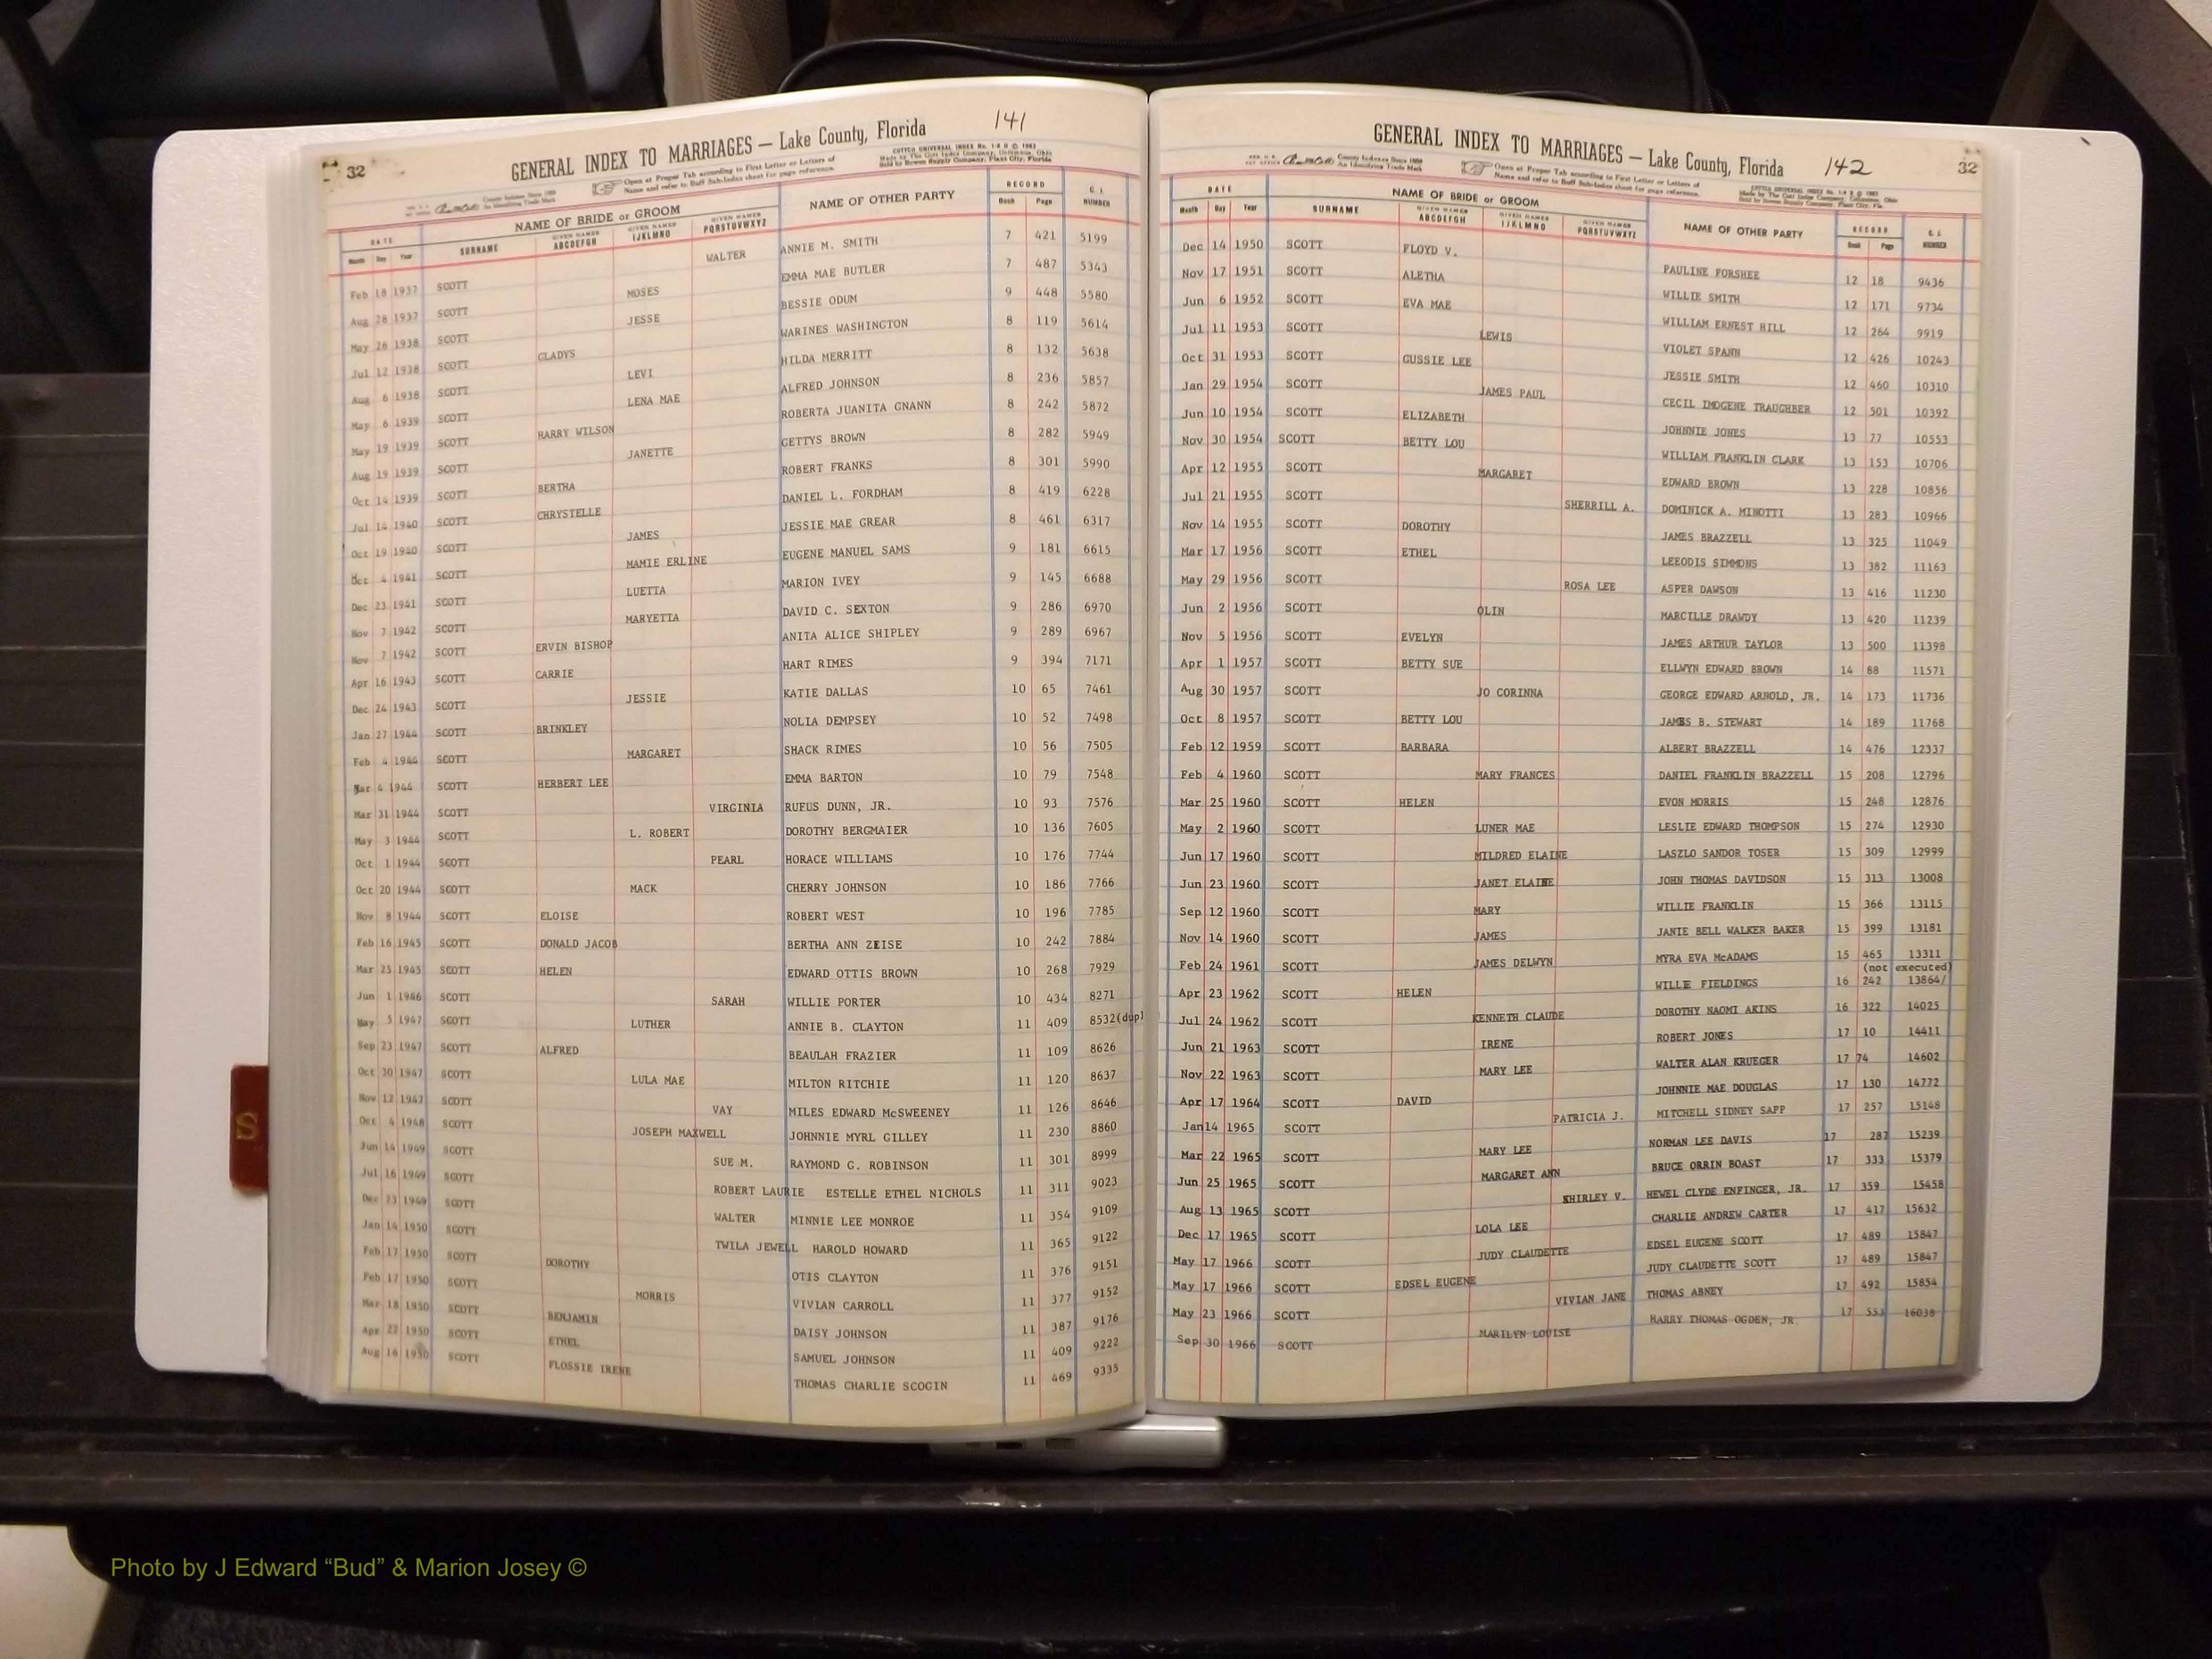 32 GENERAL INDEX TO MARRIAGES — Lake County, Florida 141
COTTCO UNIVERSAL INDEX No. 1-S
Made by The Cott Index Company, Columbus, Ohio
Sold by Bowen Supply Company, Plant City, Florida
County Indexes Since 1888
An Identifying Trade Mark
Open at Proper Tab according to First Letter or Letters of
Name and refer to Buff Sub-Index sheet for page reference.
DATE NAME OF BRIDE or GROOM NAME OF OTHER PARTY RECORD G. I. NUMBER
Month Day Year SURNAME GIVEN NAMES ABCDEFGH GIVEN NAMES IJKLMNO GIVEN NAMES PQRSTUVWXYZ Book Page
Feb 18 1937 SCOTT WALTER ANNIE M. SMITH 7 421 5199
Aug 28 1937 SCOTT MOSES EMMA MAE BUTLER 7 487 5343
May 26 1938 SCOTT JESSE BESSIE ODUM 9 448 5580
Jul 12 1938 SCOTT GLADYS WARINES WASHINGTON 8 119 5614
Aug 6 1938 SCOTT LEVI HILDA MERRITT 8 132 5638
May 6 1939 SCOTT LENA MAE ALFRED JOHNSON 8 236 5857
May 19 1939 SCOTT HARRY WILSON ROBERTA JUANITA GNANN 8 242 5872
Aug 19 1939 SCOTT JANETTE GETTYS BROWN 8 282 5949
Oct 14 1939 SCOTT BERTHA ROBERT FRANKS 8 301 5990
Jul 14 1940 SCOTT CHRYSTELLE DANIEL L. FORDHAM 8 419 6228
Oct 19 1940 SCOTT JAMES JESSIE MAE GREAR 8 461 6317
Oct 4 1941 SCOTT MAMIE ERLINE EUGENE MANUEL SAMS 9 181 6615
Dec 23 1941 SCOTT LUETTA MARION IVEY 9 145 6688
Nov 7 1942 SCOTT MARYETTA DAVID C. SEXTON 9 286 6970
Nov 7 1942 SCOTT ERVIN BISHOP ANITA ALICE SHIPLEY 9 289 6967
Apr 16 1943 SCOTT CARRIE HART RIMES 9 394 7171
Dec 24 1943 SCOTT JESSIE KATIE DALLAS 10 65 7461
Jan 27 1944 SCOTT BRINKLEY NOLIA DEMPSEY 10 52 7498
Feb 4 1944 SCOTT MARGARET SHACK RIMES 10 56 7505
Mar 4 1944 SCOTT HERBERT LEE EMMA BARTON 10 79 7548
Mar 31 1944 SCOTT VIRGINIA RUFUS DUNN, JR. 10 93 7576
May 3 1944 SCOTT L. ROBERT DOROTHY BERGMAIER 10 136 7605
Oct 1 1944 SCOTT PEARL HORACE WILLIAMS 10 176 7744
Oct 20 1944 SCOTT MACK CHERRY JOHNSON 10 186 7766
Nov 8 1944 SCOTT ELOISE ROBERT WEST 10 196 7785
Feb 16 1945 SCOTT DONALD JACOB BERTHA ANN ZEISE 10 242 7884
Mar 25 1945 SCOTT HELEN EDWARD OTTIS BROWN 10 268 7929
Jun 1 1946 SCOTT SARAH WILLIE PORTER 10 434 8271
May 5 1947 SCOTT LUTHER ANNIE B. CLAYTON 11 409 8532(dup)
Sep 23 1947 SCOTT ALFRED BEAULAH FRAZIER 11 109 8626
Oct 30 1947 SCOTT LULA MAE MILTON RITCHIE 11 120 8637
Nov 12 1947 SCOTT VAY MILES EDWARD McSWEENEY 11 126 8646
Oct 4 1948 SCOTT JOSEPH MAXWELL JOHNNIE MYRL GILLEY 11 230 8860
Jun 14 1949 SCOTT SUE M. RAYMOND G. ROBINSON 11 301 8999
Jul 16 1949 SCOTT ROBERT LAURIE ESTELLE ETHEL NICHOLS 11 311 9023
Dec 23 1949 SCOTT WALTER MINNIE LEE MONROE 11 354 9109
Jan 14 1950 SCOTT TWILA JEWELL HAROLD HOWARD 11 365 9122
Feb 17 1950 SCOTT DOROTHY OTIS CLAYTON 11 376 9151
Feb 17 1950 SCOTT MORRIS VIVIAN CARROLL 11 377 9152
Mar 18 1950 SCOTT BENJAMIN DAISY JOHNSON 11 387 9176
Apr 22 1950 SCOTT ETHEL SAMUEL JOHNSON 11 409 9222
Aug 16 1950 SCOTT FLOSSIE IRENE THOMAS CHARLIE SCOGIN 11 469 9335
S
GENERAL INDEX TO MARRIAGES — Lake County, Florida 142 32
County Indexes Since 1888
An Identifying Trade Mark
Open at Proper Tab according to First Letter or Letters of
Name and refer to Buff Sub-Index sheet for page reference.
DATE NAME OF BRIDE or GROOM NAME OF OTHER PARTY RECORD G. I. NUMBER
Month Day Year SURNAME GIVEN NAMES ABCDEFGH GIVEN NAMES IJKLMNO GIVEN NAMES PQRSTUVWXYZ Book Page
Dec 14 1950 SCOTT FLOYD V. PAULINE FORSHEE 12 18 9436
Nov 17 1951 SCOTT ALETHA WILLIE SMITH 12 171 9734
Jun 6 1952 SCOTT EVA MAE WILLIAM ERNEST HILL 12 264 9919
Jul 11 1953 SCOTT LEWIS VIOLET SPANN 12 426 10243
Oct 31 1953 SCOTT GUSSIE LEE JESSIE SMITH 12 460 10310
Jan 29 1954 SCOTT JAMES PAUL CECIL IMOGENE TRAUGHBER 12 501 10392
Jun 10 1954 SCOTT ELIZABETH JOHNNIE JONES 13 77 10553
Nov 30 1954 SCOTT BETTY LOU WILLIAM FRANKLIN CLARK 13 153 10706
Apr 12 1955 SCOTT MARGARET EDWARD BROWN 13 228 10856
Jul 21 1955 SCOTT SHERRILL A. DOMINICK A. MINOTTI 13 283 10966
Nov 14 1955 SCOTT DOROTHY JAMES BRAZZELL 13 325 11049
Mar 17 1956 SCOTT ETHEL LEEODIS SIMMONS 13 382 11163
May 29 1956 SCOTT ROSA LEE ASPER DAWSON 13 416 11230
Jun 2 1956 SCOTT OLIN MARCILLE DRAWDY 13 420 11239
Nov 5 1956 SCOTT EVELYN JAMES ARTHUR TAYLOR 13 500 11398
Apr 1 1957 SCOTT BETTY SUE ELLWYN EDWARD BROWN 14 88 11571
Aug 30 1957 SCOTT JO CORINNA GEORGE EDWARD ARNOLD, JR. 14 173 11736
Oct 8 1957 SCOTT BETTY LOU JAMES B. STEWART 14 189 11768
Feb 12 1959 SCOTT BARBARA ALBERT BRAZZELL 14 476 12337
Feb 4 1960 SCOTT MARY FRANCES DANIEL FRANKLIN BRAZZELL 15 208 12796
Mar 25 1960 SCOTT HELEN EVON MORRIS 15 248 12876
May 2 1960 SCOTT LUNER MAE LESLIE EDWARD THOMPSON 15 274 12930
Jun 17 1960 SCOTT MILDRED ELAINE LASZLO SANDOR TOSER 15 309 12999
Jun 23 1960 SCOTT JANET ELAINE JOHN THOMAS DAVIDSON 15 313 13008
Sep 12 1960 SCOTT MARY WILLIE FRANKLIN 15 366 13115
Nov 14 1960 SCOTT JAMES JANIE BELL WALKER BAKER 15 399 13181
Feb 24 1961 SCOTT JAMES DELWYN MYRA EVA McADAMS 15 465 13311
(not executed)
Apr 23 1962 SCOTT HELEN WILLIE FIELDINGS 16 242 13864/
Jul 24 1962 SCOTT KENNETH CLAUDE DOROTHY NAOMI AKINS 16 322 14025
Jun 21 1963 SCOTT IRENE ROBERT JONES 17 10 14411
Nov 22 1963 SCOTT MARY LEE WALTER ALAN KRUEGER 17 74 14602
Apr 17 1964 SCOTT DAVID JOHNNIE MAE DOUGLAS 17 130 14772
Jan 14 1965 SCOTT PATRICIA J. MITCHELL SIDNEY SAPP 17 257 15148
Mar 22 1965 SCOTT MARY LEE NORMAN LEE DAVIS 17 287 15239
Jun 25 1965 SCOTT MARGARET ANN BRUCE ORRIN BOAST 17 333 15379
Aug 13 1965 SCOTT SHIRLEY V. HEWEL CLYDE ENFINGER, JR. 17 359 15458
Dec 17 1965 SCOTT LOLA LEE CHARLIE ANDREW CARTER 17 417 15632
May 17 1966 SCOTT JUDY CLAUDETTE EDSEL EUGENE SCOTT 17 489 15847
May 17 1966 SCOTT EDSEL EUGENE JUDY CLAUDETTE SCOTT 17 489 15847
May 23 1966 SCOTT VIVIAN JANE THOMAS ABNEY 17 492 15854
Sep 30 1966 SCOTT MARILYN LOUISE HARRY THOMAS OGDEN, JR. 17 553 16038
Photo by J Edward “Bud” & Marion Josey ©